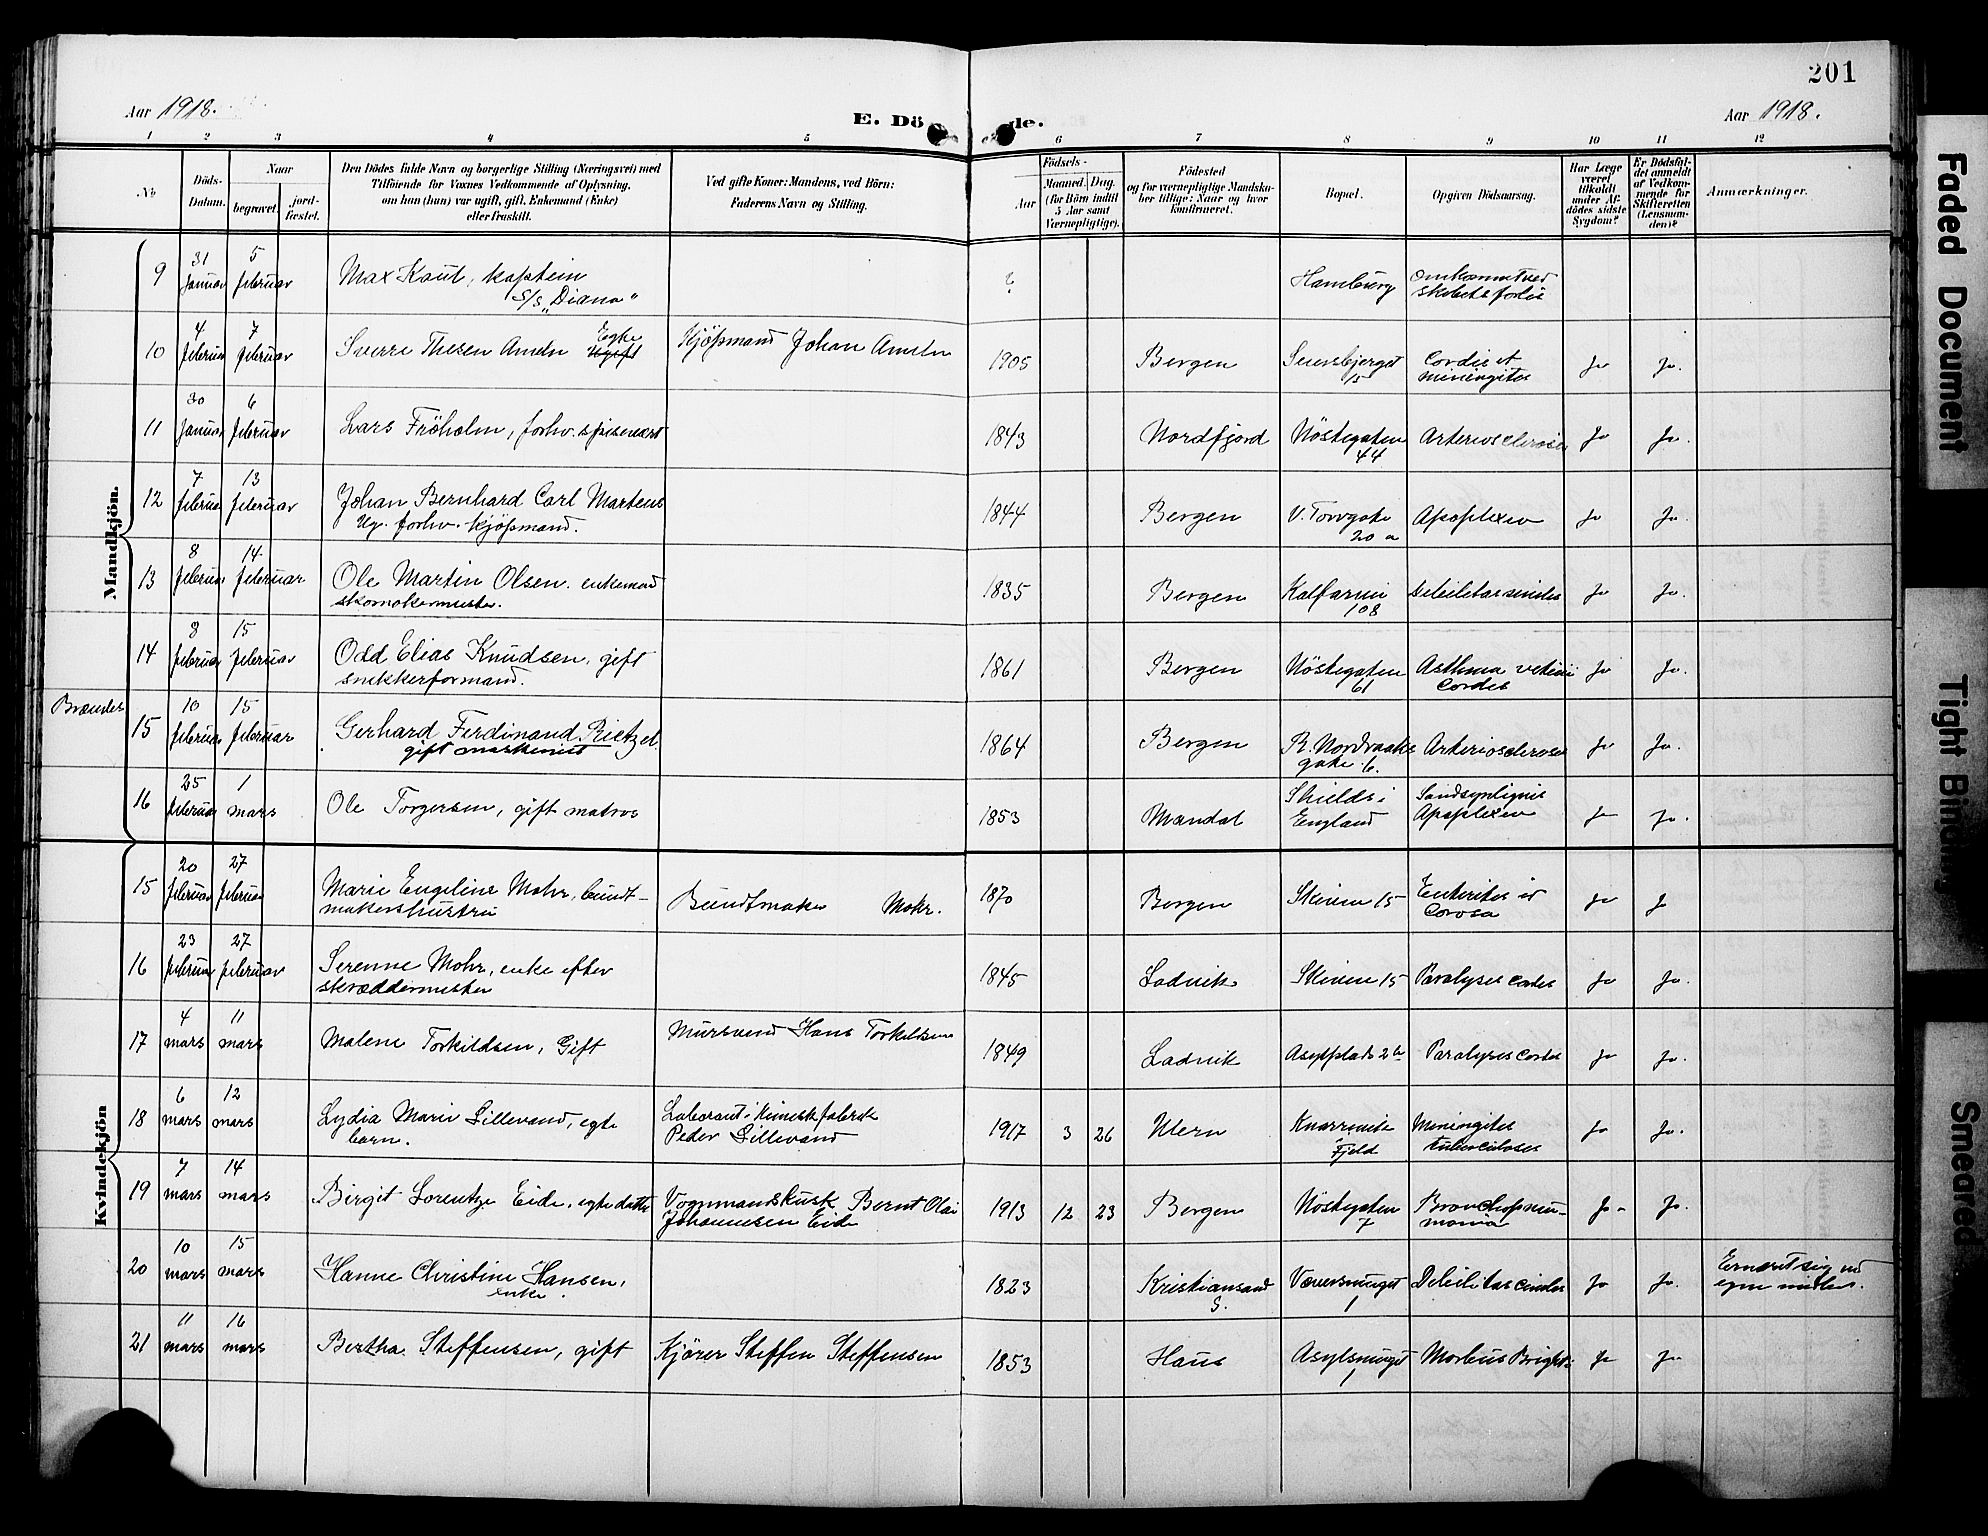 201
Aar 1918.
E. Dö de.
Aar 1918.
1 2 3 4 5 6 7 8 9 10 11 12
No
Döds-Datum.
Naar
begravet.
jordfæstet.
Den Dödes fulde Navn og borgerlige Stilling (Næringsvei) med
Tilföiende for Voxnes Vedkommende af Oplysning,
om han (hun) var ugift, gift, Enkemand (Enke)
eller fraskilt.
Ved gifte Koner: Mandens, ved Börn:
Faderens Navn og Stilling.
Födsels-
Aar
Maaned. Dag.
(for Börn indtil
5 Aar samt
Værnepligtige).
Födested
og for værnepligtige Mandska-
ber tillige: Naar og hvor
konfirmeret.
Bopæl.
Opgiven Dödsaarsag.
Har Læge
været
tilkaldt
under Af-
dödes sidste
Sygdom?
Er Dödsfal-
det anmeldt
af Vedkom-
mende for
Skifteretten
(Lensman-
den)?
Anmærkninger.
Mandkjön.
9 31 Januar 5 februar Max Kaut, kaptein S/S „Diana" ? Hamburg Omkommet ved skibets forlis
10 4 februar 7 februar Sverre Thesen Ameln Egte Ugift Kjöpmand Johan Ameln 1905 Bergen 15 Cordis et miningites Ja Ja.
11 30 Januar 6 februar Lars Fröholm, forhv. spisevært 1843 Nordfjord Nöstegaten 44 Arteriosclerosis Ja Ja.
12 7 februar 13 februar Johan Bernhard Carl Martens Ug. forhv. kjöpmand. 1844 Bergen V. Torvgate 20 a Apoplexia Ja Ja.
13 8 februar 14 februar Ole Martin Olsen. enkemand skomakermester. 1835 Bergen Kalfarvei 108 Debilitas senilis Ja Ja.
14 8 februar 15 februar Odd Elias Knudsen, gift snekkerformand. 1861 Bergen Nöstegaten 61 Asthma Cordis Ja Ja.
Brændes
15 10 februar 15 februar Gerhard Ferdinand Rietzel. gift maskinist 1864 Bergen R. Nordraaks gate 6. Arteriosclerose Ja Ja.
16 25 februar 1 mars Ole Torgersen, gift matros 1853 Mandal Shields i England Sandsynligvis Apoplexia Ja Ja.
Kvindekjön
15 20 februar 27 februar Marie Engeline Mohr, bundt-makershustru Bundtmaker Mohr. 1870 Bergen Skiven 15 Ja J
16 23 februar 27 februar Serenne Mohr, enke efter skræddermester 1845 Ladvik Skiven 15 Paralyses cordis Ja Ja.
17 4 mars 11 mars Malene Torkildsen, Gift Mursvend Hans Torkildsen 1849 Ladvik Asylplads Paralyses cordis Ja Ja.
18 6 mars 12 mars Lydia Marie Lillevand, egte barn. Laborant i kimisk fabrik Peder Lillevand 1917 3 26 Ulern Fjeld Miningites tuberculoses Ja Ja.
19 7 mars 14 mars Birgit Lorentze Eide, egte datter Vognmandskusk Bernt Olai Johannesen Eide 1913 12 23 Bergen Nöstegaten 7 Bronchopneu-monia Ja Ja.
20 10 mars 15 mars Hanne Christine Hansen, enke. 1823 Kristiansand S. Væversmuget 1 Debilitas senilis Ja Ja. Ernæret sig ved egne midler.
21 11 mars 16 mars Bertha Steffensen, gift Kjörer Steffen Steffensen 1853 Haus Asylsmuget 1 Morbus Brighti Ja Ja
Faded Document
Tight Binding
Smeared